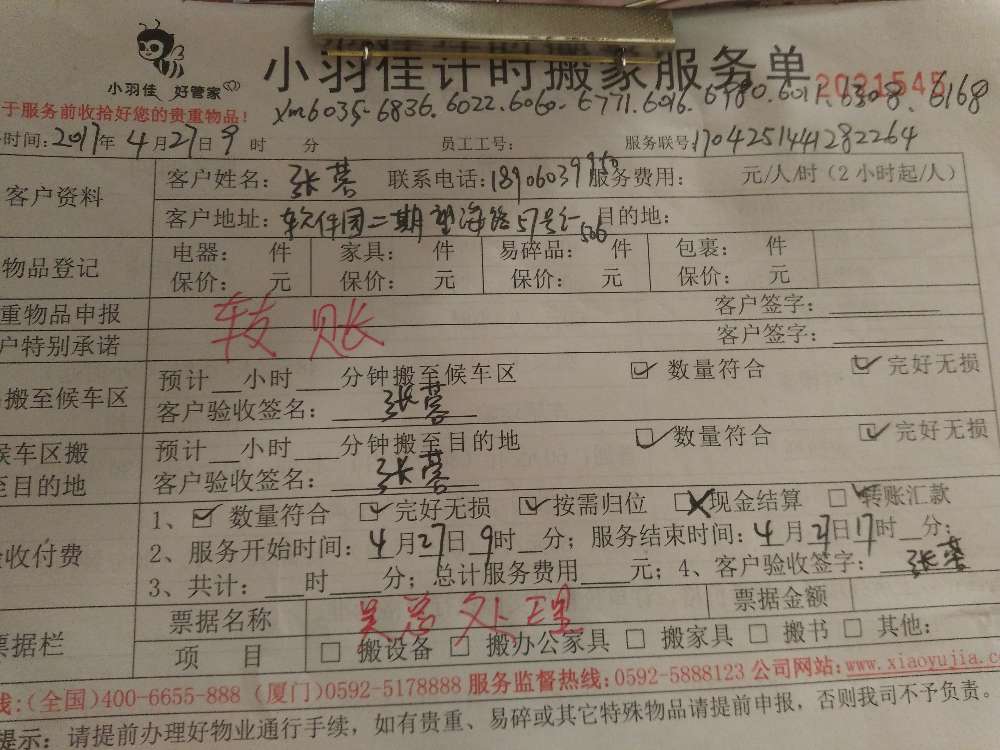 小羽佳 好管家
小羽佳计时搬家服务单
2021545
于服务前收拾好您的贵重物品!
xm6035-6836.6022.6060.6771.6016.6980.6011.6308.6168
时间:2017年4月27日9时 分 员工工号: 服务联号:1704251441282264
客户资料 客户姓名:张蓉 联系电话:189060399 服务费用: 元/人/时(2小时起/人)
客户地址:软件园二期望海路57号 506 目的地:
物品登记 电器: 件 家具: 件 易碎品: 件 包裹: 件
保价: 元 保价: 元 保价: 元 保价: 元
重物品申报 客户签字:
转账
户特别承诺 客户签字:
搬至候车区 预计 小时 分钟搬至候车区 ☑数量符合 ☑完好无损
客户验收签名:张蓉
候车区搬至目的地 预计 小时 分钟搬至目的地 ☑数量符合 ☑完好无损
客户验收签名:张蓉
收付费 1、☑数量符合 ☑完好无损 ☑按需归位 ☒现金结算 ☑转账汇款
2、服务开始时间:4月27日9时 分;服务结束时间:4月27日17时 分;
3、共计: 时 分;总计服务费用 元;4、客户验收签字:张蓉
票据栏 票据名称 吴总处理 票据金额
项 目 □搬设备 □搬办公家具 □搬家具 □搬书 □其他:
线:(全国)400-6655-888 (厦门)0592-5178888 服务监督热线:0592-5888123 公司网站:www.xiaoyujia.co
提示:请提前办理好物业通行手续,如有贵重、易碎或其它特殊物品请提前申报,否则我司不予负责。